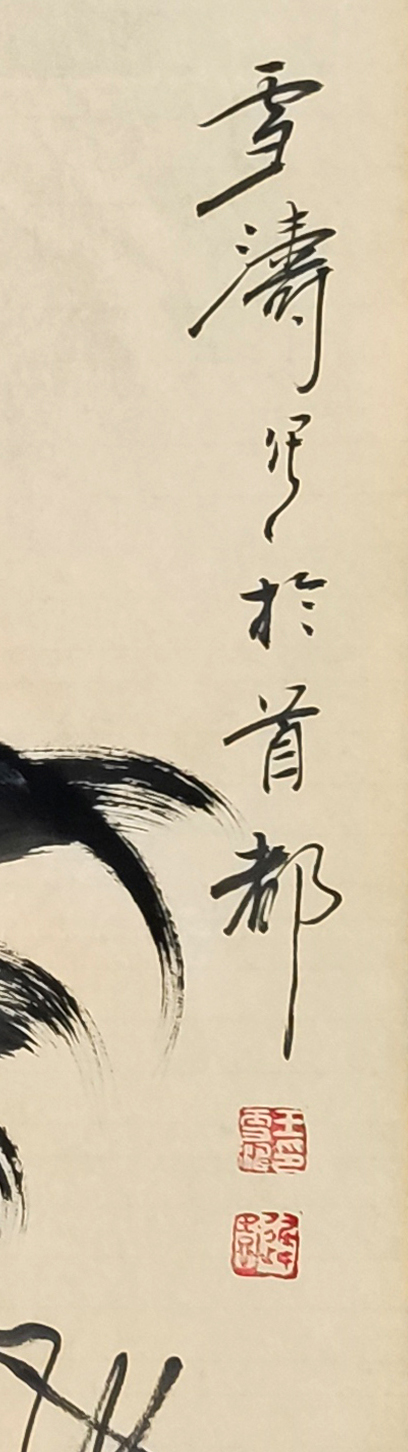 雪濤写於首都
王雪濤印